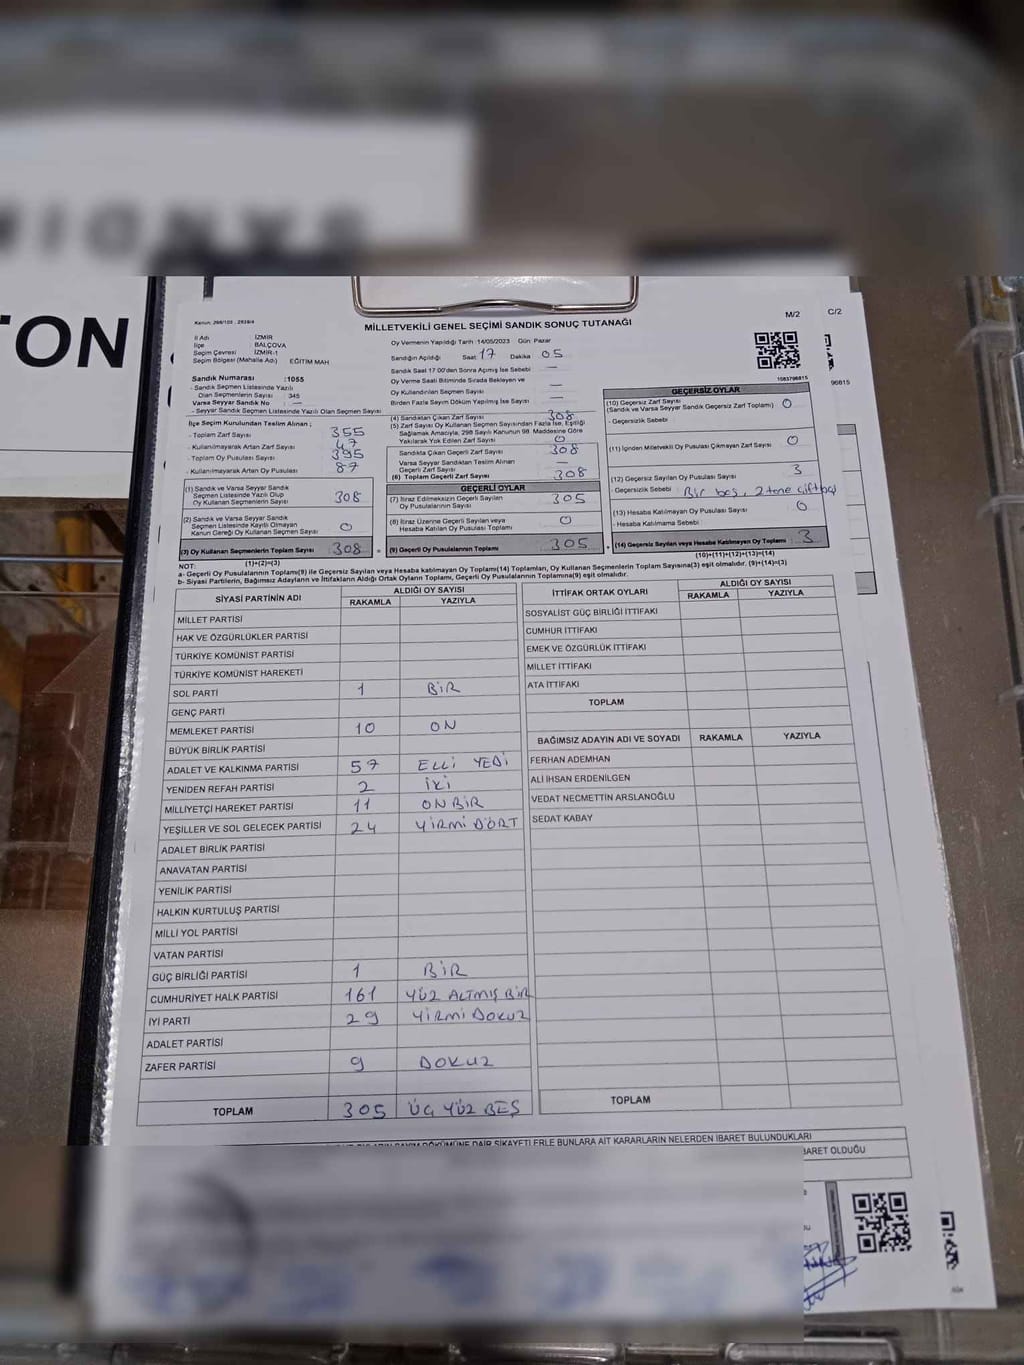 TON
Kanun: 298/105 , 2839/4
MİLLETVEKİLİ GENEL SEÇİMİ SANDIK SONUÇ TUTANAĞI
M/2
C/2
İl Adı : İZMİR
İlçe : BALÇOVA
Seçim Çevresi : İZMİR-1
Seçim Bölgesi (Mahalle Adı) : EĞİTİM MAH
Sandık Numarası :1055
- Sandık Seçmen Listesinde Yazılı
Olan Seçmenlerin Sayısı : 345
Varsa Seyyar Sandık No :
- Seyyar Sandık Seçmen Listesinde Yazılı Olan Seçmen Sayısı :
Oy Vermenin Yapıldığı Tarih :14/05/2023 Gün: Pazar
Sandığın Açıldığı Saat 17 Dakika 05
Sandık Saat 17:00'den Sonra Açılmış İse Sebebi —
Oy Verme Saati Bitiminde Sırada Bekleyen ve
Oy Kullandırılan Seçmen Sayısı —
Birden Fazla Sayım Döküm Yapılmış İse Sayısı —
1083796815
96815
İlçe Seçim Kurulundan Teslim Alınan ;
- Toplam Zarf Sayısı : 355
- Kullanılmayarak Artan Zarf Sayısı : 47
- Toplam Oy Pusulası Sayısı : 395
- Kullanılmayarak Artan Oy Pusulası : 87
(1) Sandık ve Varsa Seyyar Sandık
Seçmen Listesinde Yazılı Olup
Oy Kullanan Seçmenlerin Sayısı 308
(2) Sandık ve Varsa Seyyar Sandık
Seçmen Listesinde Kayıtlı Olmayan
Kanun Gereği Oy Kullanan Seçmen Sayısı 0
(3) Oy Kullanan Seçmenlerin Toplam Sayısı 308
(1)+(2)=(3)
(4) Sandıktan Çıkan Zarf Sayısı 308
(5) Zarf Sayısı Oy Kullanan Seçmen Sayısından Fazla İse, Eşitliği
Sağlamak Amacıyla, 298 Sayılı Kanunun 98. Maddesine Göre
Yakılarak Yok Edilen Zarf Sayısı 0
Sandıkta Çıkan Geçerli Zarf Sayısı 308
Varsa Seyyar Sandıktan Teslim Alınan
Geçerli Zarf Sayısı —
(6) Toplam Geçerli Zarf Sayısı 308
GEÇERLİ OYLAR
(7) İtiraz Edilmeksizin Geçerli Sayılan
Oy Pusulalarının Sayısı 305
(8) İtiraz Üzerine Geçerli Sayılan veya
Hesaba Katılan Oy Pusulası Toplamı 0
(9) Geçerli Oy Pusulalarının Toplamı 305
GEÇERSİZ OYLAR
(10) Geçersiz Zarf Sayısı
(Sandık ve Varsa Seyyar Sandık Geçersiz Zarf Toplamı) 0
- Geçersizlik Sebebi :
(11) İçinden Milletvekili Oy Pusulası Çıkmayan Zarf Sayısı 0
(12) Geçersiz Sayılan Oy Pusulası Sayısı 3
- Geçersizlik Sebebi : Bir boş, 2 tane çift
(13) Hesaba Katılmayan Oy Pusulası Sayısı 0
- Hesaba Katılmama Sebebi :
(14) Geçersiz Sayılan veya Hesaba Katılmayan Oy Toplamı 3
(10)+(11)+(12)+(13)=(14)
NOT:
a- Geçerli Oy Pusulalarının Toplamı(9) ile Geçersiz Sayılan veya Hesaba katılmayan Oy Toplamı(14) Toplamları, Oy Kullanan Seçmenlerin Toplam Sayısına(3) eşit olmalıdır. (9)+(14)=(3)
b- Siyasi Partilerin, Bağımsız Adayların ve İttifakların Aldığı Ortak Oyların Toplamı, Geçerli Oy Pusulalarının Toplamına(9) eşit olmalıdır.
SİYASİ PARTİNİN ADI ALDIĞI OY SAYISI
RAKAMLA YAZIYLA
MİLLET PARTİSİ
HAK VE ÖZGÜRLÜKLER PARTİSİ
TÜRKİYE KOMÜNİST PARTİSİ
TÜRKİYE KOMÜNİST HAREKETİ
SOL PARTİ 1 BİR
GENÇ PARTİ
MEMLEKET PARTİSİ 10 ON
BÜYÜK BİRLİK PARTİSİ
ADALET VE KALKINMA PARTİSİ 57 ELLİ YEDİ
YENİDEN REFAH PARTİSİ 2 İKİ
MİLLİYETÇİ HAREKET PARTİSİ 11 ONBİR
YEŞİLLER VE SOL GELECEK PARTİSİ 24 YİRMİ DÖRT
ADALET BİRLİK PARTİSİ
ANAVATAN PARTİSİ
YENİLİK PARTİSİ
HALKIN KURTULUŞ PARTİSİ
MİLLİ YOL PARTİSİ
VATAN PARTİSİ
GÜÇ BİRLİĞİ PARTİSİ 1 BİR
CUMHURİYET HALK PARTİSİ 161 YÜZ ALTMIŞ BİR
İYİ PARTİ 29 YİRMİ DOKUZ
ADALET PARTİSİ
ZAFER PARTİSİ 9 DOKUZ
TOPLAM 305 ÜÇ YÜZ BEŞ
İTTİFAK ORTAK OYLARI ALDIĞI OY SAYISI
RAKAMLA YAZIYLA
SOSYALİST GÜÇ BİRLİĞİ İTTİFAKI
CUMHUR İTTİFAKI
EMEK VE ÖZGÜRLÜK İTTİFAKI
MİLLET İTTİFAKI
ATA İTTİFAKI
TOPLAM
BAĞIMSIZ ADAYIN ADI VE SOYADI RAKAMLA YAZIYLA
FERHAN ADEMHAN
ALİ İHSAN ERDENİLGEN
VEDAT NECMETTİN ARSLANOĞLU
SEDAT KABAY
TOPLAM
DÖKÜMÜNE DAİR ŞİKAYETLERLE BUNLARA AİT KARARLARIN NELERDEN İBARET BULUNDUKLARI
BARET OLDUĞU